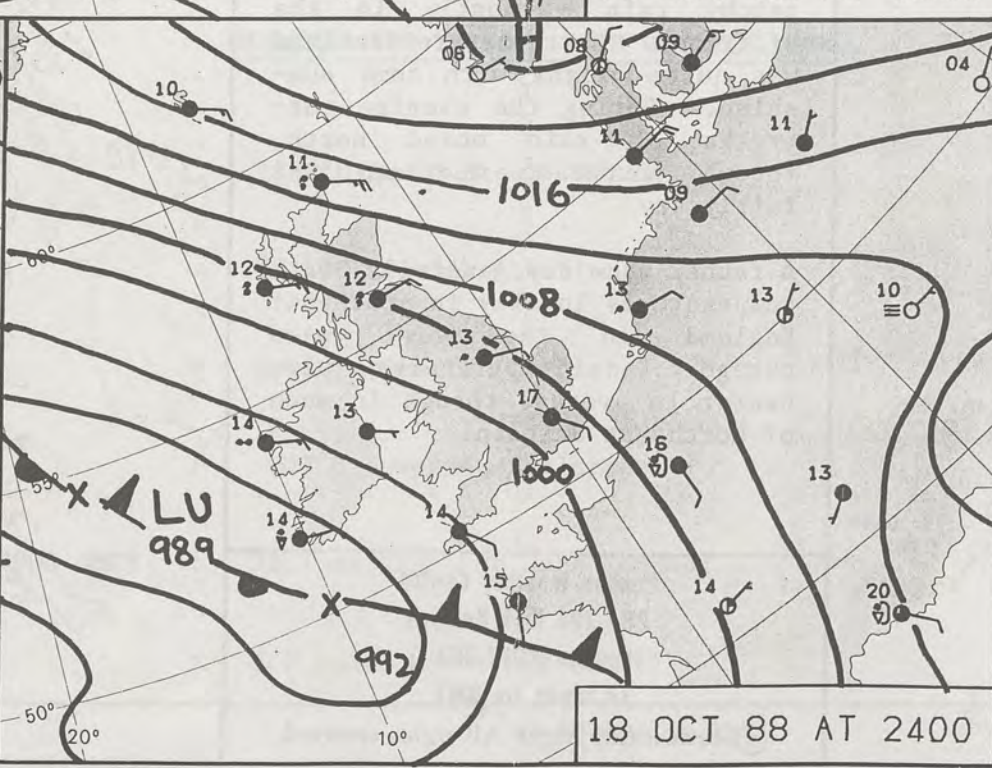 06
08
09
04
10
11
11
11
1016
09
60°
12
12
1008
13
13
10
13
17
14
13
16
1000
13
55°
LU
989
14
14
15
14
20
992
50°
20°
10°
18 OCT 88 AT 2400